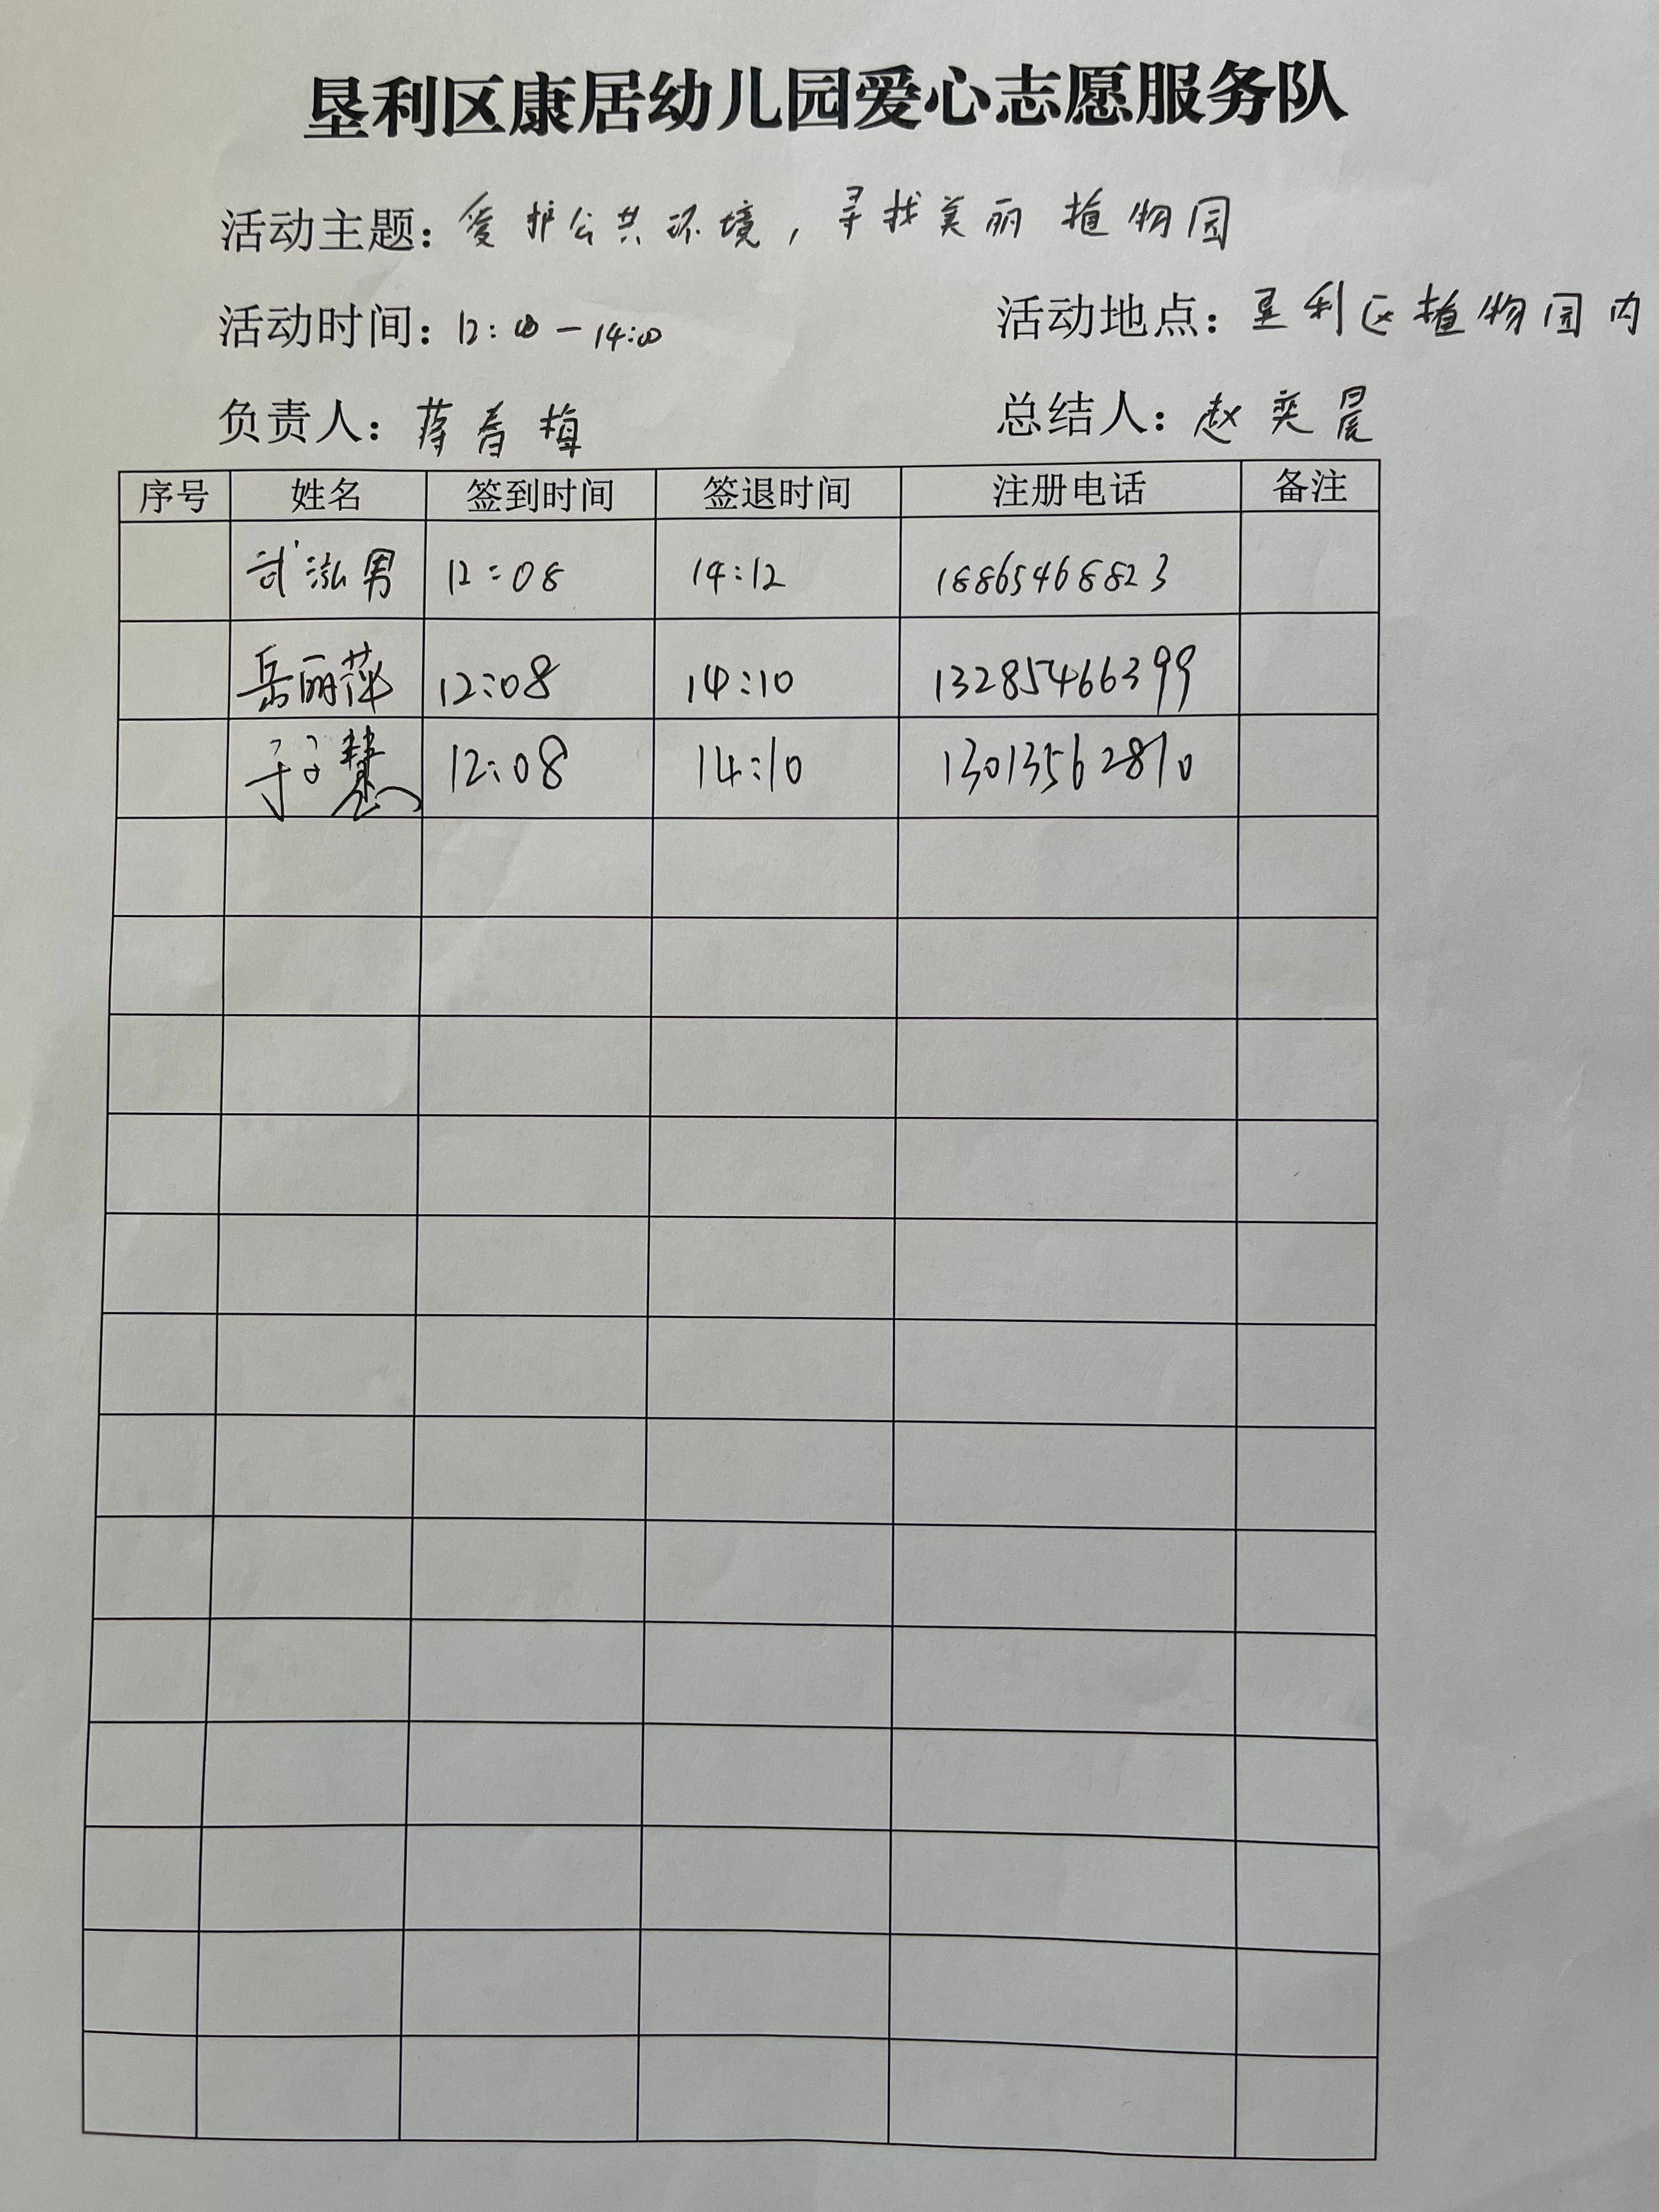 垦利区康居幼儿园爱心志愿服务队
活动主题：爱护公共环境，寻找美丽植物园
活动时间：12:00－14:00 活动地点：垦利区植物园内
负责人：蒋春梅 总结人：赵奕晨
序号 姓名 签到时间 签退时间 注册电话 备注
武泓男 12:08 14:12 18865468823
岳丽萍 12:08 14:10 13285466399
于慧 12:08 14:10 13013562810